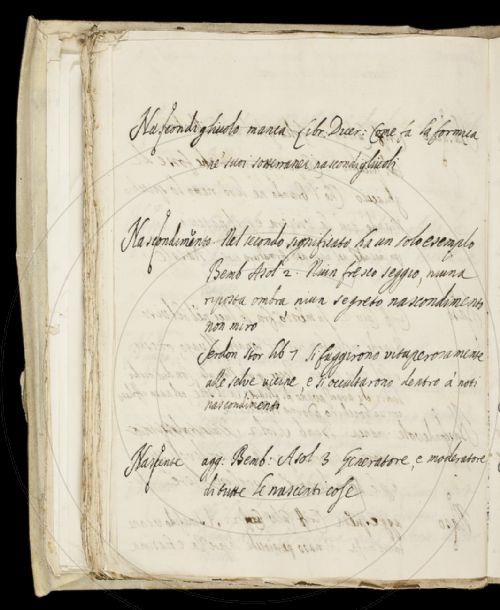 Nascondigliuolo manca Libr. Dicer: Come fà la formica
ne' suoi sotterranei nascondigliuoli
Nascondimento Nel secondo significato ha un solo esemplo
Bemb Asol 2. Niun fresco seggio, niuna
riposta ombra niun segreto nascondimento
non miro
Serdon Stor lib 7 Si fuggirono vituperosamente
alle selve vicine, e si occultarono dentro à noti
nascondimenti
Nascente agg: Bemb: Asol 3 Generatore, e moderatore
di tutte le nascenti cose